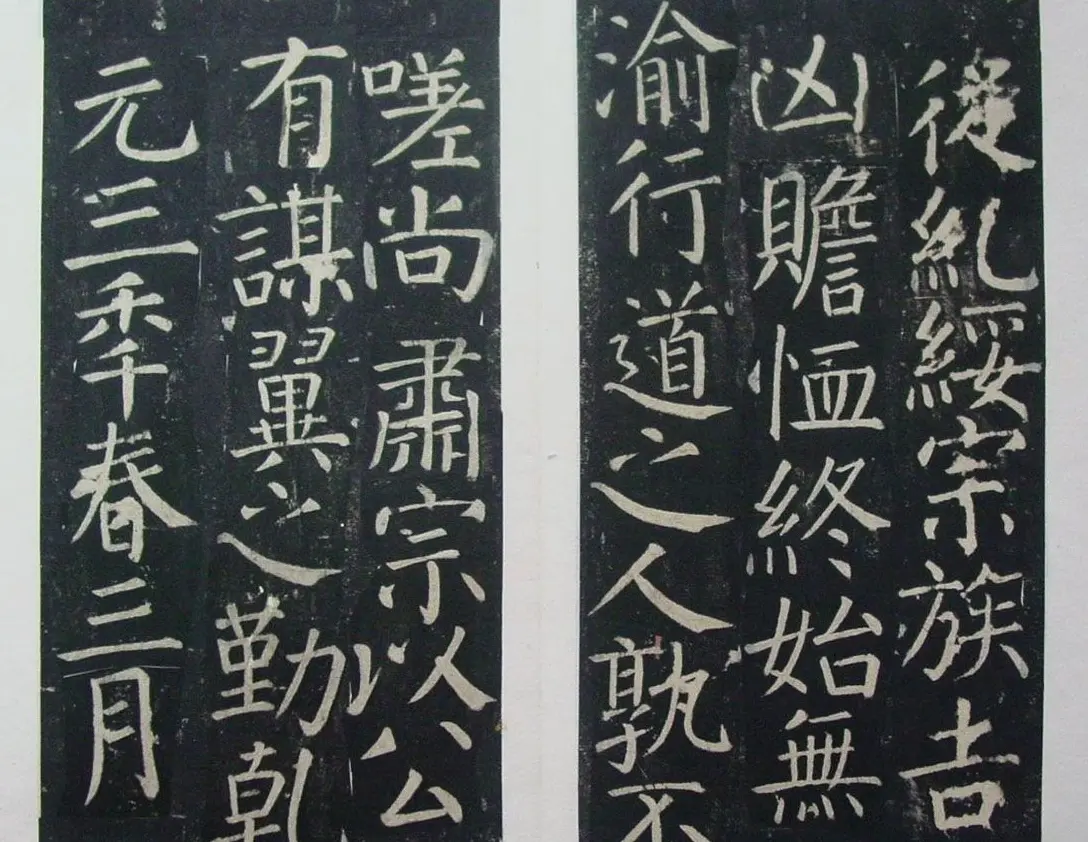 從糺綏宗族吉
凶贍恤終始無
渝行道之人孰不
嗟尚肅宗以公
有謀翼之勤乾
元三秊春三月